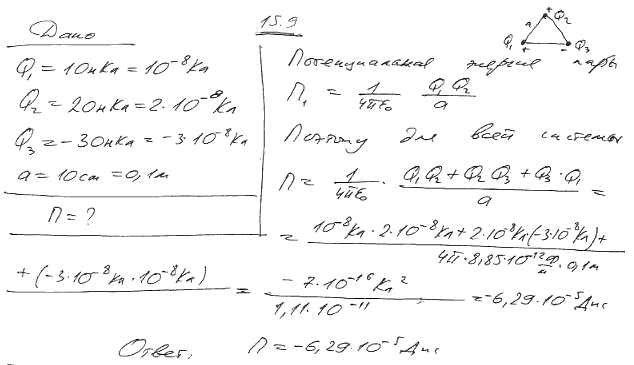 15.9
Дано
Q₁ = 10нКл = 10⁻⁸Кл
Q₂ = 20нКл = 2·10⁻⁸Кл
Q₃ = -30нКл = -3·10⁻⁸Кл
a = 10см = 0,1м
П = ?
a + Q₂
Q₁ + - Q₃
Потенциальная энергия пары
П₁ = 1/4πε₀ Q₁Q₂/a
Поэтому для всей системы
П = 1/4πε₀ · (Q₁Q₂ + Q₂Q₃ + Q₃·Q₁)/a =
= 10⁻⁸Кл · 2·10⁻⁸Кл + 2·10⁻⁸Кл(-3·10⁻⁸Кл) +
4π·8,85·10⁻¹² Ф/м · 0,1м
+ (-3·10⁻⁸Кл·10⁻⁸Кл) = -7·10⁻¹⁶Кл² / 1,11·10⁻¹¹ = -6,29·10⁻⁵Дж
Ответ: П = -6,29·10⁻⁵Дж